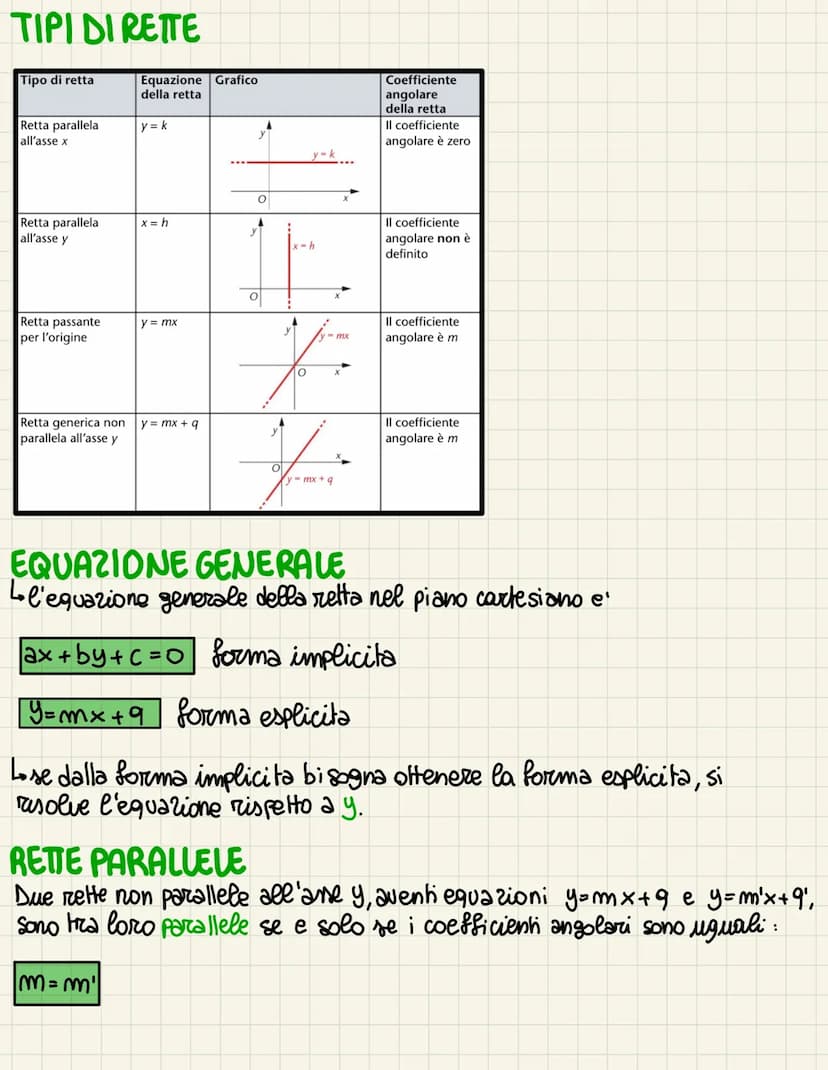 TIPI DI RETTE
Tipo di retta
Equazione
della retta
Grafico
Coefficiente
angolare
della retta
Retta parallela
all'asse x
y = k
y
y = k
O
x
Il coefficiente
angolare è zero
Retta parallela
all'asse y
x = h
y
x = h
O
x
Il coefficiente
angolare non è
definito
Retta passante
per l'origine
y = mx
y
y = mx
O
x
Il coefficiente
angolare è m
Retta generica non
parallela all'asse y
y = mx + q
y
x
O
y = mx + q
Il coefficiente
angolare è m
EQUAZIONE GENERALE
↳ l'equazione generale della retta nel piano cartesiano e'
ax + by + c = 0 forma implicita
y = mx + q forma esplicita
↳ se dalla forma implicita bisogna ottenere la forma esplicita, si
risolve l'equazione rispetto a y.
RETTE PARALLELE
Due rette non parallele all'asse y, aventi equazioni y=mx+q e y=m'x+q',
sono tra loro parallele se e solo se i coefficienti angolari sono uguali:
m = m'